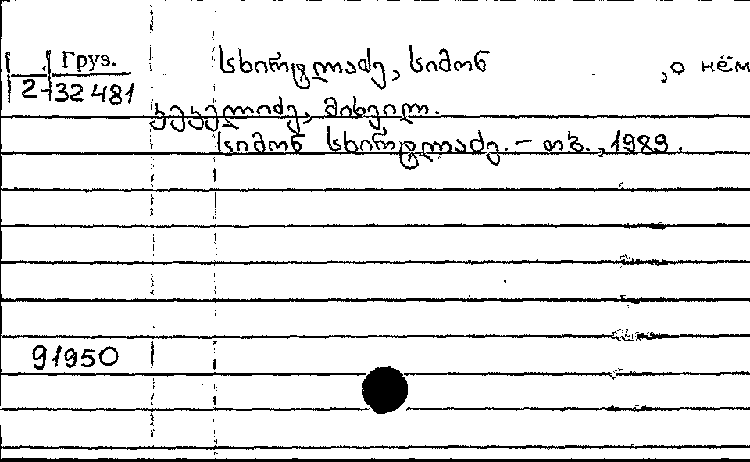 Груз.
2-32 481
სხირტლაძე, სიმონ ,о нём
კეკელიძე, მიხეილ.
სიმონ სხირტლაძე. - თბ., 1989.
91950